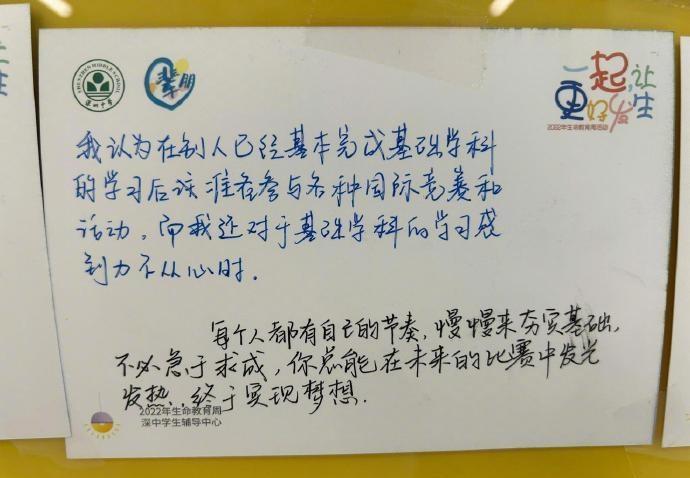 SHENZHEN MIDDLE SCHOOL
深圳中学
辈朋
一起,让
更好发生
2022年生命教育周活动
我认为在别人已经基本完成基础学科
的学习后该准备参与各种国际竞赛和
活动,而我还对于基础学科的学习感
到力不从心时.
每个人都有自己的节奏,慢慢来夯实基础,
不必急于求成,你总能在未来的比赛中发光
发热,终于实现梦想.
2022年生命教育周
深中学生辅导中心